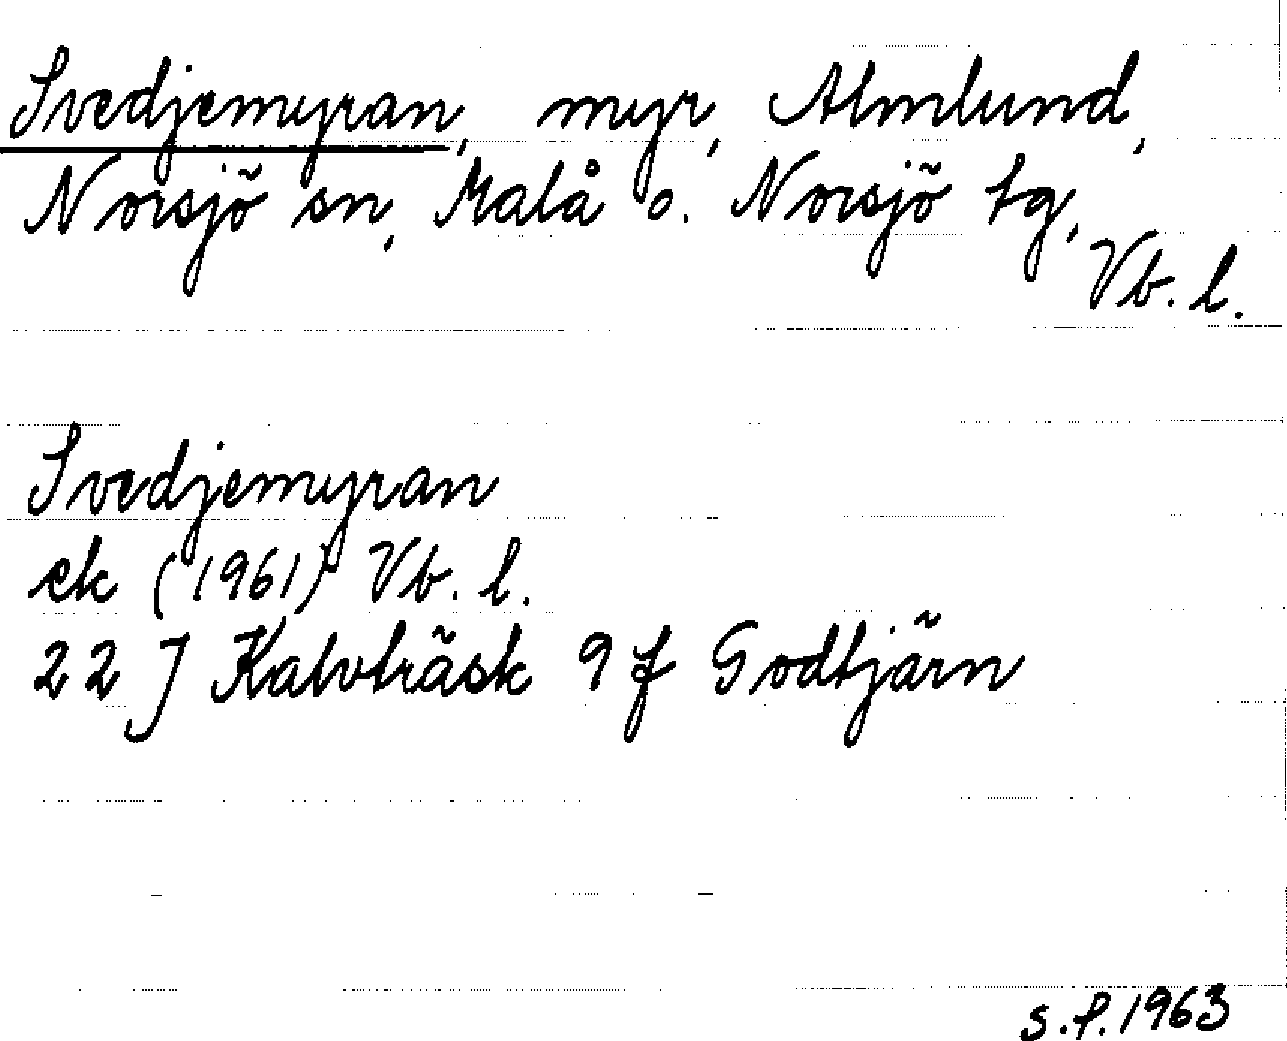 Svedjemyran, myr, Almlund,
Norsjö sn, Malå o. Norsjö tg,
Vb. l.
Svedjemyran
ek (1961) Vb. l.
22 J Kalvträsk 9 f Godtjärn
s.f. 1963